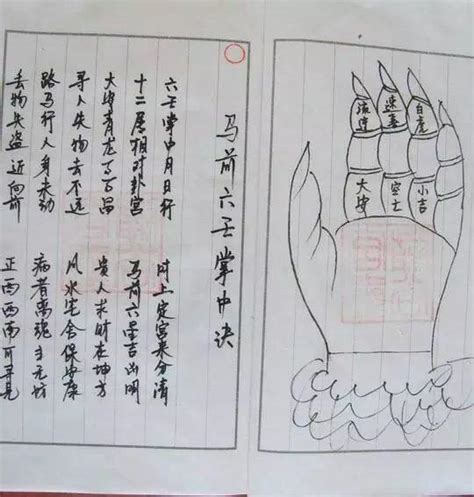 马前六壬掌中诀
六壬掌中月日行 时上定宫来分清
十二辰相对卦宫 马前六星吉凶明
大安青龙百百昌 贵人求财在坤方
寻人失物去不远 风水宅舍保安康
路马行人身未动 病者离魂主无坊
丢物失盗近向前 正南西南可寻见
流连 速喜 白虎
大安 空亡 小吉